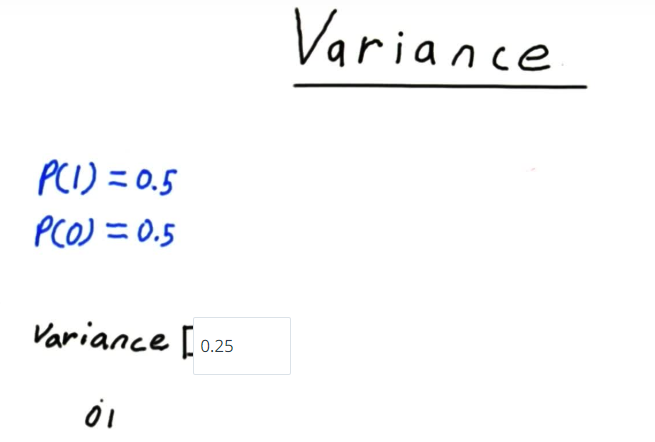 Variance
P(1) = 0.5
P(0) = 0.5
Variance 0.25
01